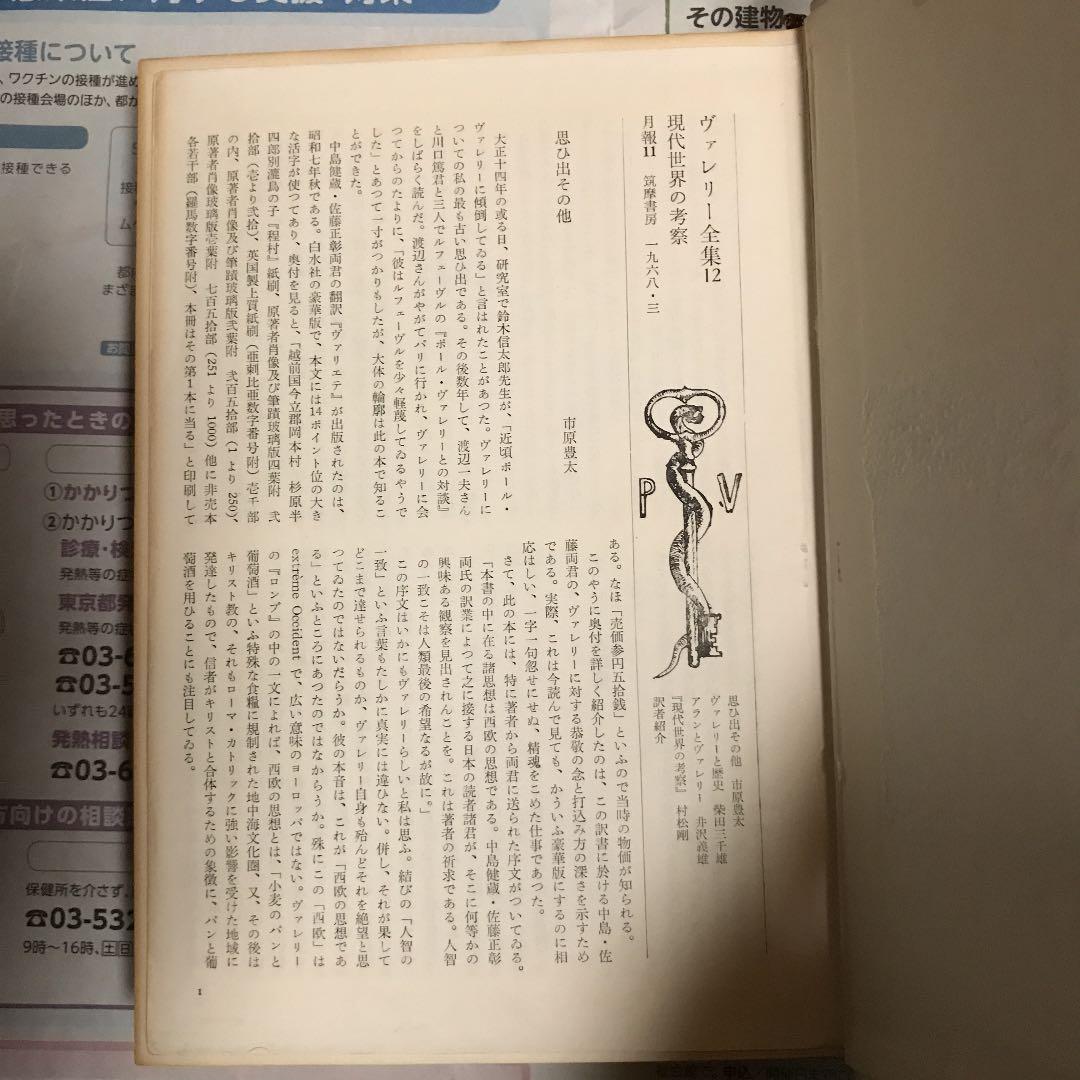 ヴァレリー全集12
現代世界の考察
月報11　筑摩書房　一九六八・三
P
V
思ひ出その他　市原豊太
ヴァレリーと歴史　柴田三千雄
アランとヴァレリー　井沢義雄
『現代世界の考察』　村松剛
訳者紹介
思ひ出その他
市原豊太
大正十四年の或る日、研究室で鈴木信太郎先生が、「近頃ポール・
ヴァレリーに傾倒してゐる」と言はれたことがあつた。ヴァレリーに
ついての私の最も古い思ひ出である。その後数年して、渡辺一夫さん
と川口篤君と三人でルフェーヴルの『ポール・ヴァレリーとの対談』
をしばらく読んだ。渡辺さんがやがてパリに行かれ、ヴァレリーに会
つてからのたよりに、「彼はルフェーヴルを少々軽蔑してゐるやうで
した」とあつて一寸がつかりもしたが、大体の輪廓は此の本で知るこ
とができた。
中島健蔵・佐藤正彰両君の翻訳『ヴァリエテ』が出版されたのは、
昭和七年秋である。白水社の豪華版で、本文には14ポイント位の大き
な活字が使つてあり、奥付を見ると、「越前国今立郡岡本村　杉原半
四郎別漉鳥の子『程村』紙刷、原著者肖像及び筆蹟玻璃版四葉附　弐
拾部（壱より弐拾）、英国製上質紙刷（亜剌比亜数字番号附）壱千部
の内、原著者肖像及び筆蹟玻璃版弐葉附　弐百五拾部（1より250）、
原著者肖像玻璃版壱葉附　七百五拾部（251より1000）他に非売本
各若干部（羅馬数字番号附）、本冊はその第1本に当る」と印刷して
ある。なほ「売価参円五拾銭」といふので当時の物価が知られる。
このやうに奥付を詳しく紹介したのは、この訳書に於ける中島・佐
藤両君の、ヴァレリーに対する恭敬の念と打込み方の深さを示すため
である。実際、これは今読んで見ても、かういふ豪華版にするのに相
応はしい、一字一句忽せにせぬ、精魂をこめた仕事であつた。
さて、此の本には、特に著者から両君に送られた序文がついてゐる。
「本書の中に在る諸思想は西欧の思想である。中島健蔵・佐藤正彰
両氏の訳業によつて之に接する日本の読者諸君が、そこに何等かの
興味ある観察を見出されんことを。これは著者の祈求である。人智
の一致こそは人類最後の希望なるが故に。」
この序文はいかにもヴァレリーらしいと私は思ふ。結びの「人智の
一致」といふ言葉もたしかに真実には違ひない。併し、それが果して
どこまで達せられるものか、ヴァレリー自身も殆んどそれを絶望と思
つてゐたのではないだらうか。彼の本音は、これが「西欧の思想であ
る」といふところにあつたのではなからうか。殊にこの「西欧」は
extrême Occidentで、広い意味のヨーロッパではない。ヴァレリー
の『ロンブ』の中の一文によれば、西欧の思想とは、「小麦のパンと
葡萄酒」といふ特殊な食糧に規制された地中海文化圏、又、その後は
キリスト教の、それもローマ・カトリックに強い影響を受けた地域に
発達したもので、信者がキリストと合体するための象徴に、パンと葡
萄酒を用ひることにも注目してゐる。
1
その建物
接種について
、ワクチンの接種が進め
の接種会場のほか、都か
接種できる
思ったときの
①かかりつ
②かかりつ
診療・検
発熱等の症
東京都発
発熱等の症
☎03-
☎03-5
いずれも24
発熱相談
☎03-6
方向けの相談
保健所を介さず、
☎03-532
9時〜16時、土日